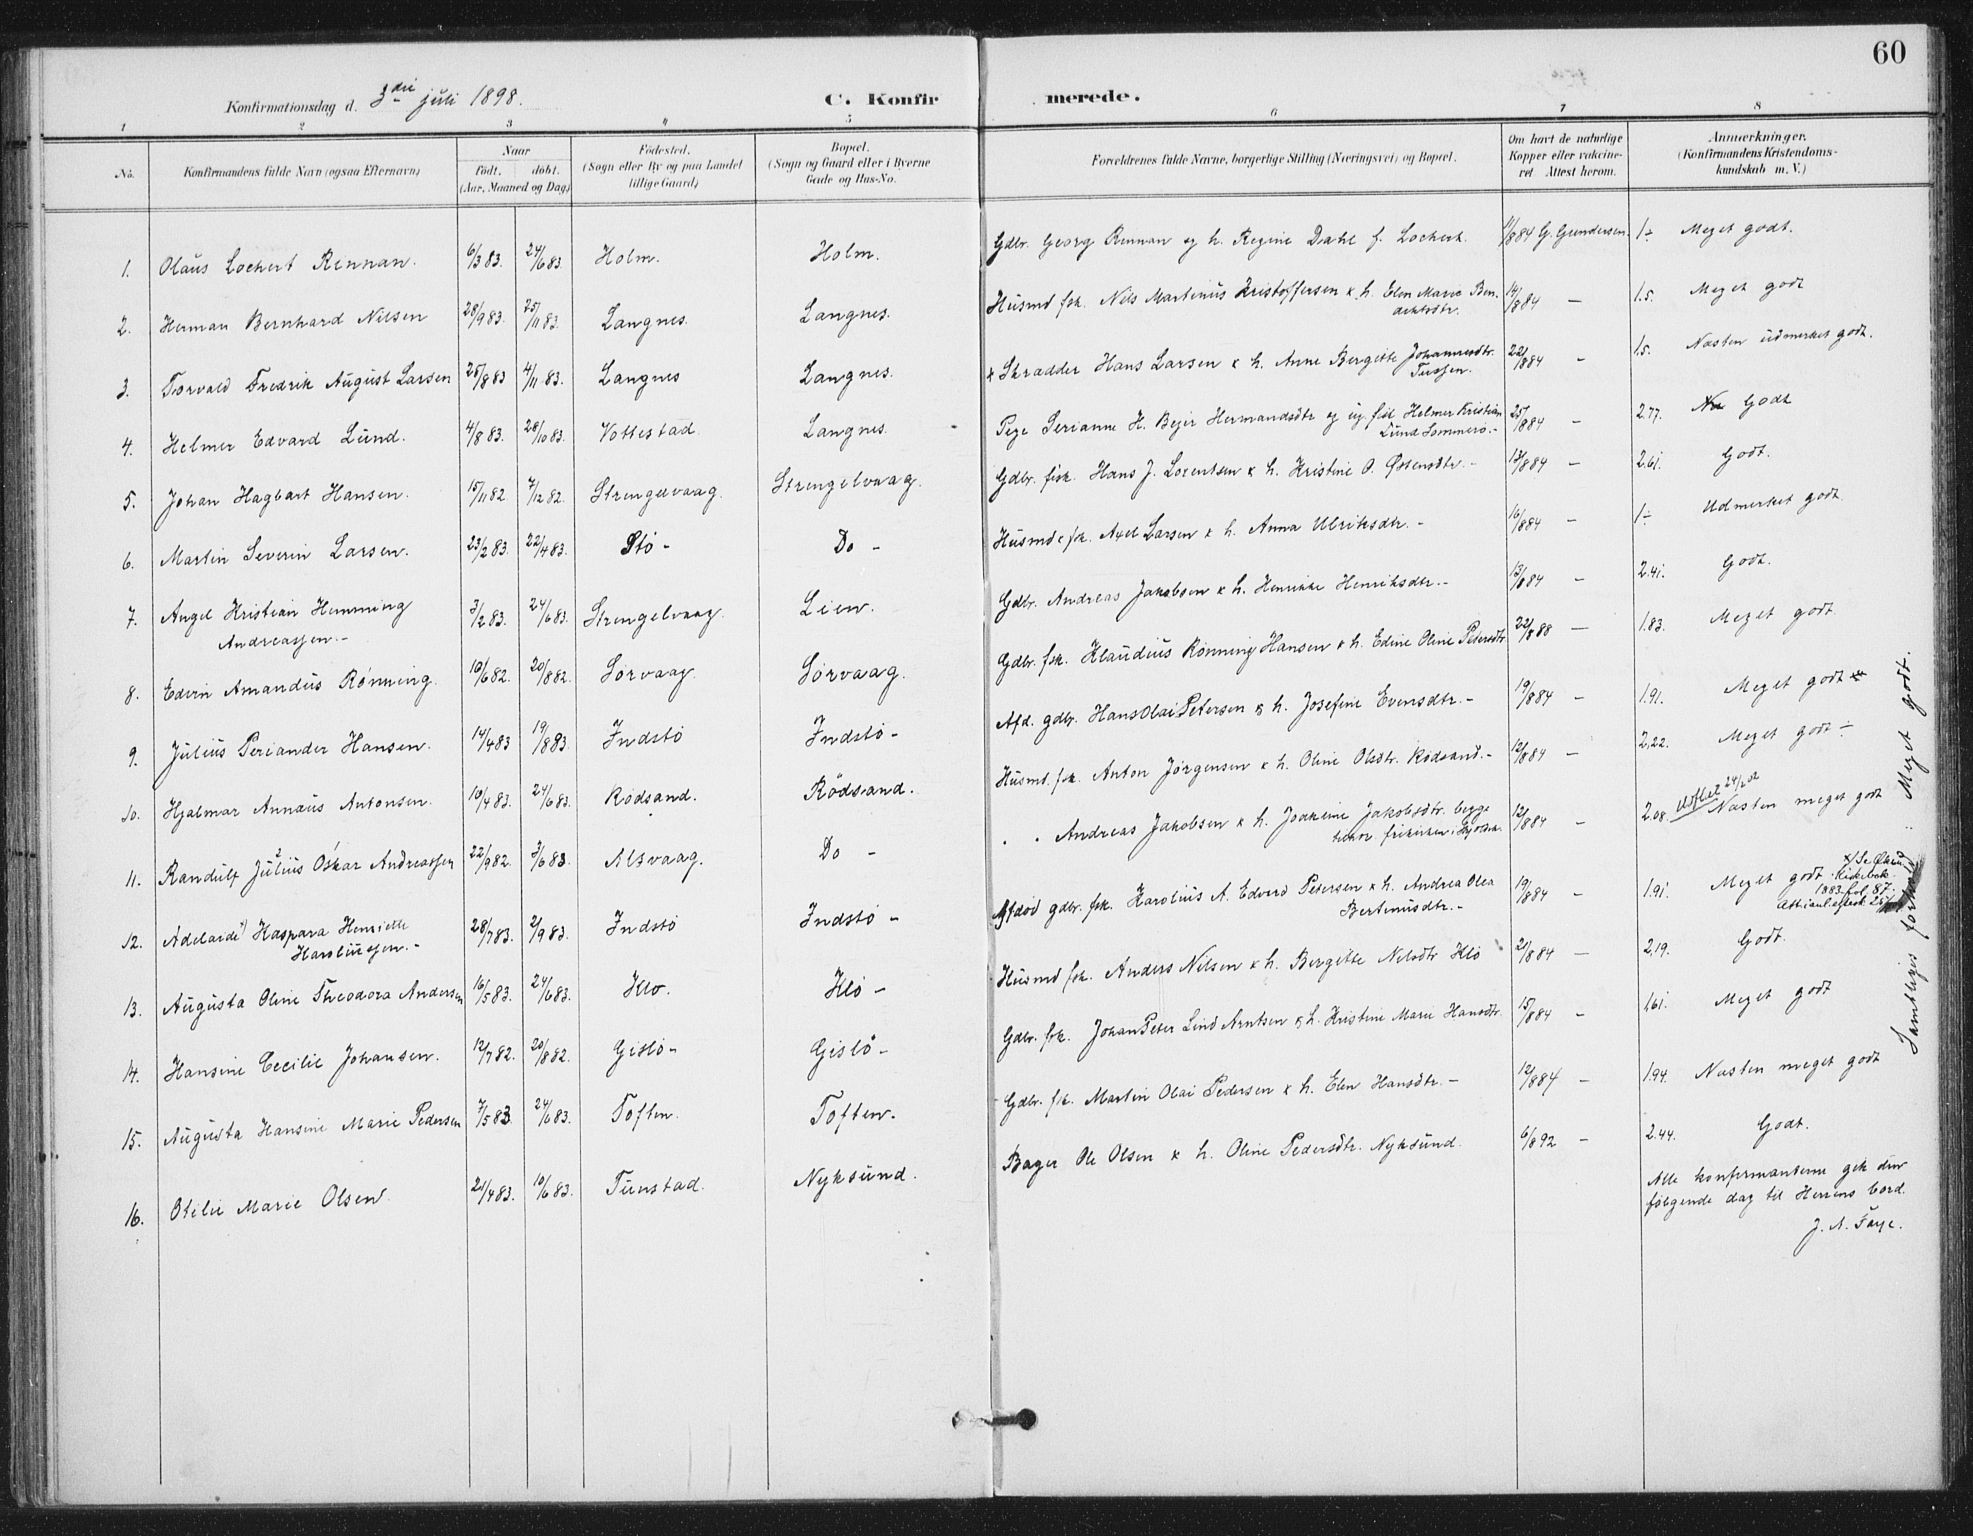 60
Konfirmationsdag d. 3die juli 1898.
C. Konfirmerede.
1 2 3 4 5 6 7 8
No.
Konfirmandens fulde Navn (ogsaa Efternavn)
Naar
født. døbt.
(Aar, Maaned og Dag)
Fødested.
(Sogn eller By og paa Landet
tillige Gaard)
Bopæl.
(Sogn og Gaard eller i Byerne
Gade og Hus-No.
Forældrenes fulde Navne, borgerlige Stilling (Næringsvei) og Bopæl.
Om havt de naturlige
Kopper eller vakcine-
ret Attest herom.
Anmærkninger.
(Konfirmandens Kristendoms-
kundskab m. V.)
1. Olaus Lockert Rennan. 6/3 83. 24/6 83. Holm. Holm. Gdbr. Georg Rennan og h. Regine Dahl f. Lockert. 11/8 84 G. Gundersen. 1÷ Meget godt.
2. Herman Bernhard Nilsen 28/9 83. 25/11 83. Langnes. Langnes. Husmd fsk. Nils Martinus Kristoffersen & h. Elen Marie Ben-
diktsdtr. 14/8 84 — 1.5. Meget godt
3. Torvald Fredrik August Larsen 25/8 83 4/11 83. Langnes Langnes. x Skrædder Hans Larsen & h. Anne Bergitte Johannesdtr.
Tussen. 22/8 84 - 1.5. Næsten udmerket godt.
4. Helmer Edvard Lund. 4/8 83. 28/10 83. Vottestad. Langnes. Pige Serianne H. Bejer Hermandsdtr og ug. fsk. Helmer Kristian
Lund Sommerø.- 25/8 84 - 2.77. Godt
5. Johan Hagbart Hansen. 15/11 82 7/12 82. Strengelvaag. Strengelvaag. Gdbr. fisk. Hans J. Lorentsen & h. Kristine O. Østensdtr.- 13/8 84 - 2.61. Godt.
6. Martin Severin Larsen. 23/2 83. 22/4 83. Stø - Do - Husmd & fsk. Axel Larsen & h. Anna Ulriksdtr. - 16/8 84 - 1÷ Udmerket godt.
7. Angel Kristian Hemming
Andreassen.- 3/2 83. 24/6 83. Strengelvaag. Lien. Gdbr. Andreas Jakobsen & h. Henrikke Henriksdtr.- 13/8 84 - 2.41. Godt.
8. Edvin Amandus Rønning. 10/6 82. 20/8 82. Sørvaag. Sørvaag. Gdbr. fsk. Klaudius Rønning Hansen & h. Edine Oline Petersdtr. 22/8 88 - 1.83. Meget godt.
9. Julius Periander Hansen. 14/4 83 19/8 83. Indstø Indstø- Afd. gdbr. Hans Olai Petersen og h. Josefine Evensdtr.- 19/8 84 - 1.91. Meget godt
10. Hjalmar Annæus Antonsen. 10/4 83. 24/6 83. Rødsand. Rødsand. Husmd. fsk. Anton Jørgensen & h. Oline Olsdtr. Rødsand.- 12/8 84 - 2,22. Meget godt÷
11. Randulf Julius Oskar Andreassen 22/9 82. 3/6 83. Alsvaag. Do - . . Andreas Jakobsen & h. Joakine Jakobsdtr. begge
12/8 84 - 2.08. Udflel 24/2 02 Næsten meget godt
12. Adelaide Kaspara Henriette
Karoliussen.- 28/7 83. 2/9 83. Indstø Indstø - Afdød gdbr. fsk. Karolius A. Edvard Petersen & h. Andrea Olea
Bertinusdtr.- 19/8 84 - 1.91. Meget godt.
1883 fol. 87.
13. Augusta Oline Theodora Andersen 16/5 83. 24/6 83. Klo. Klo - Husmd fsk. Anders Nilsen & h. Bergitte Nilsdtr Klo 21/8 84 - 2,19. Godt.
14. Hansine Cecilie Johansen. 12/7 82. 20/8 82. Gislø- Gislø- Gdbr. fsk. Johan Peter Lind Arntsen & h. Kristine Marie Hansdtr. 15/8 84 - 1.61. Meget godt
15. Augusta Hansine Marie Pedersen 7/5 83. 24/6 83. Toften. Toften. Gdbr. fsk. Martin Olai Pedersen & h. Elen Hansdtr.- 12/8 84 - 1.94. Næsten meget godt
16. Otilie Marie Olsen. 21/4 83. 10/6 83. Tunstad. Nyksund. Bager Ole Olsen & h. Oline Pedersdtr. Nyksund. 6/8 92 - 2.44. Godt.
Samtliges forhold: Meget godt.
Alle konfirmanterne gik den
følgende dag til Herrens bord.
J. A. Faye.